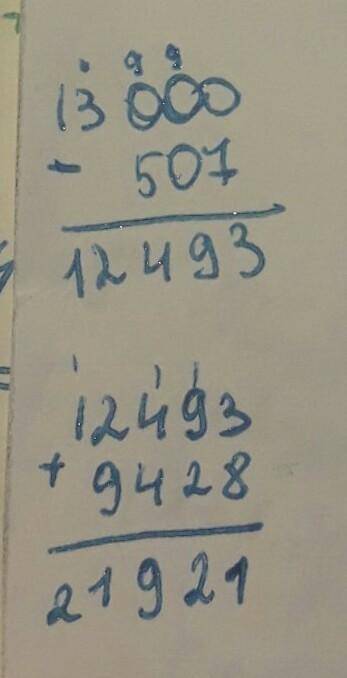 . 9 9
13 000
- 507
12493
1 1 1
12493
+ 9428
21921